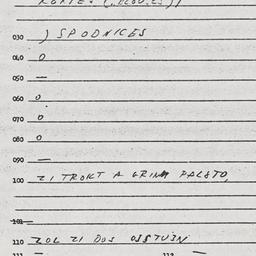 030 ) SPODNICES
040 0
050 —
060 0
070 0
080 0
090 —
100 ZI TROKT A GRINM PALSTO,
101
110 ZOL ZI DOS OJSSTUJN
111 — 112 —